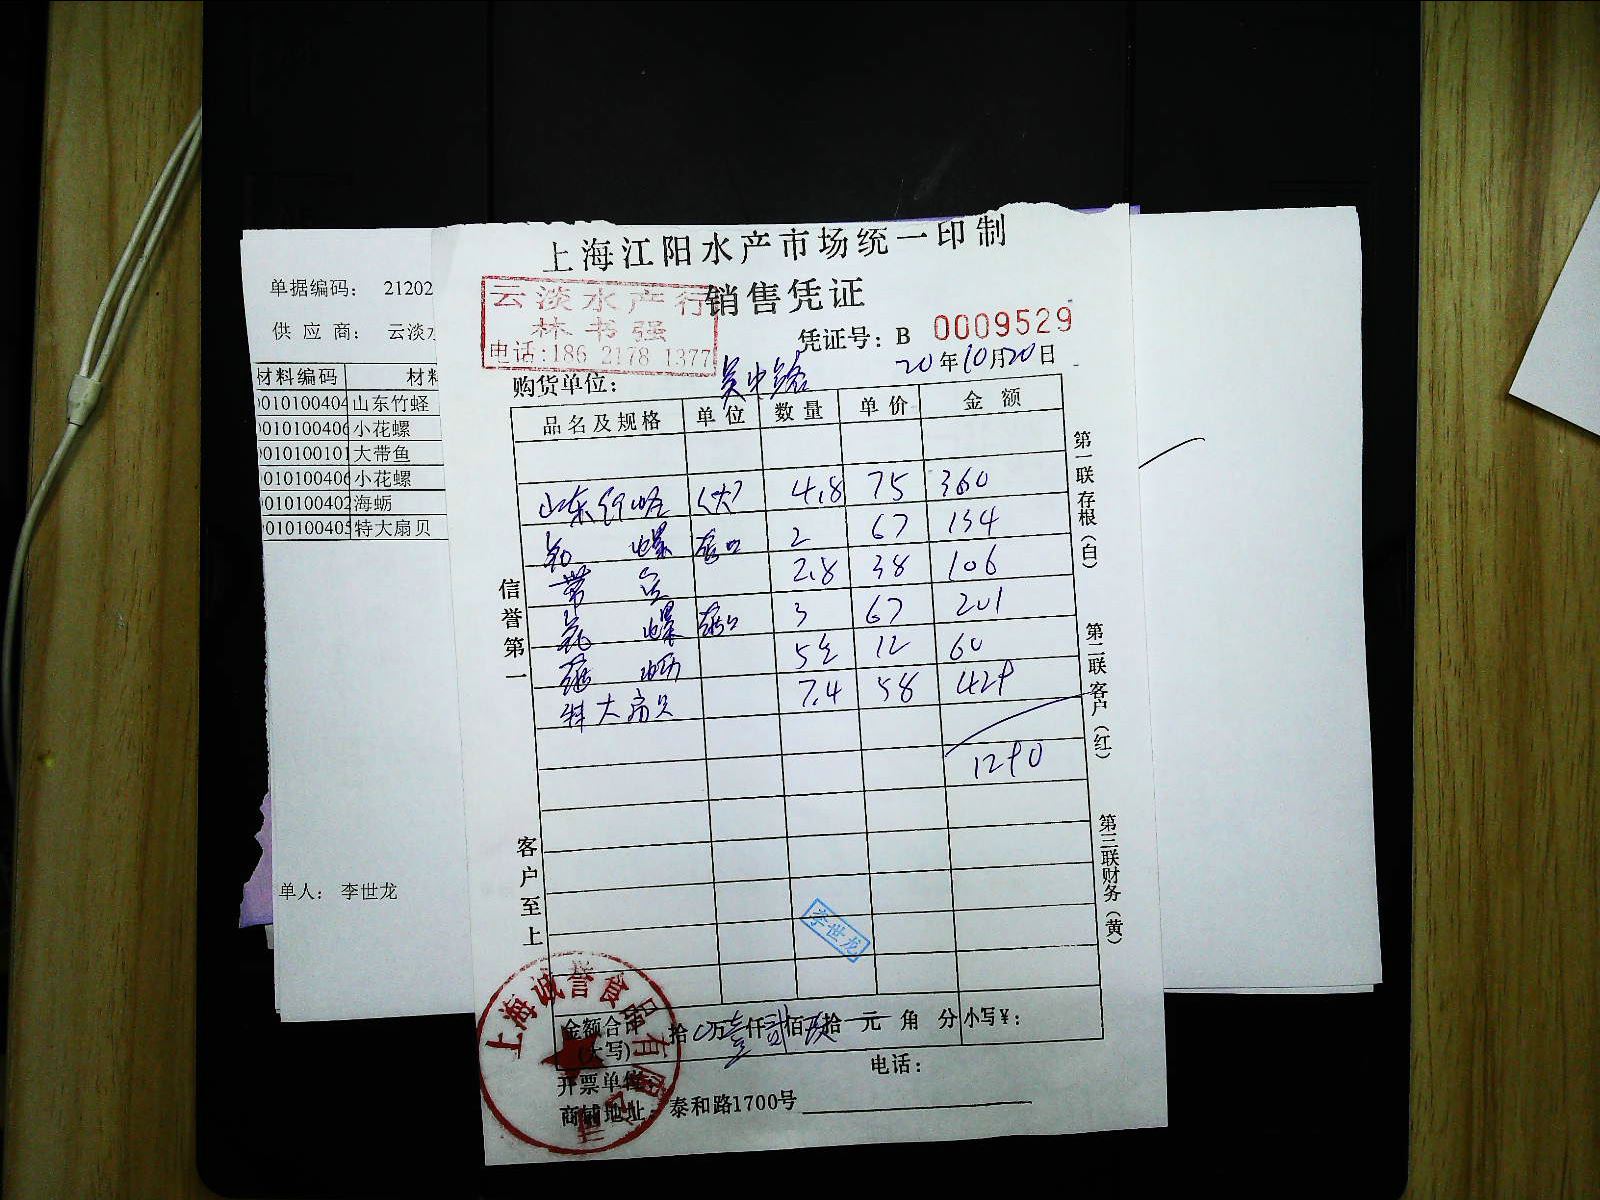 上海江阳水产市场统一印制
销售凭证
云淡水产行
林书强
电话:186 2178 1377
凭证号: B 0009529
购货单位: 吴中路 20年10月20日
品名及规格 单位 数量 单价 金额
山东竹蛏 (大) 4.8 75 360
花螺 2 67 134
带鱼 2.8 38 106
花螺 3 67 201
海蛎 5 12 60
特大扇贝 7.4 58 429
1290
信誉第一
客户至上
第一联存根(白)
第二联客户(红)
第三联财务(黄)
李世龙
金额合计(大写) 拾 万壹仟贰佰玖拾 元 角 分 小写¥:
开票单位: 电话:
商铺地址: 泰和路1700号
上海诚誉食品有限公司
单据编码: 21202
供应商: 云淡水
材料编码 材料
0010100404 山东竹蛏
0010100406 小花螺
0010100101 大带鱼
0010100406 小花螺
0010100402 海蛎
0010100405 特大扇贝
单人: 李世龙